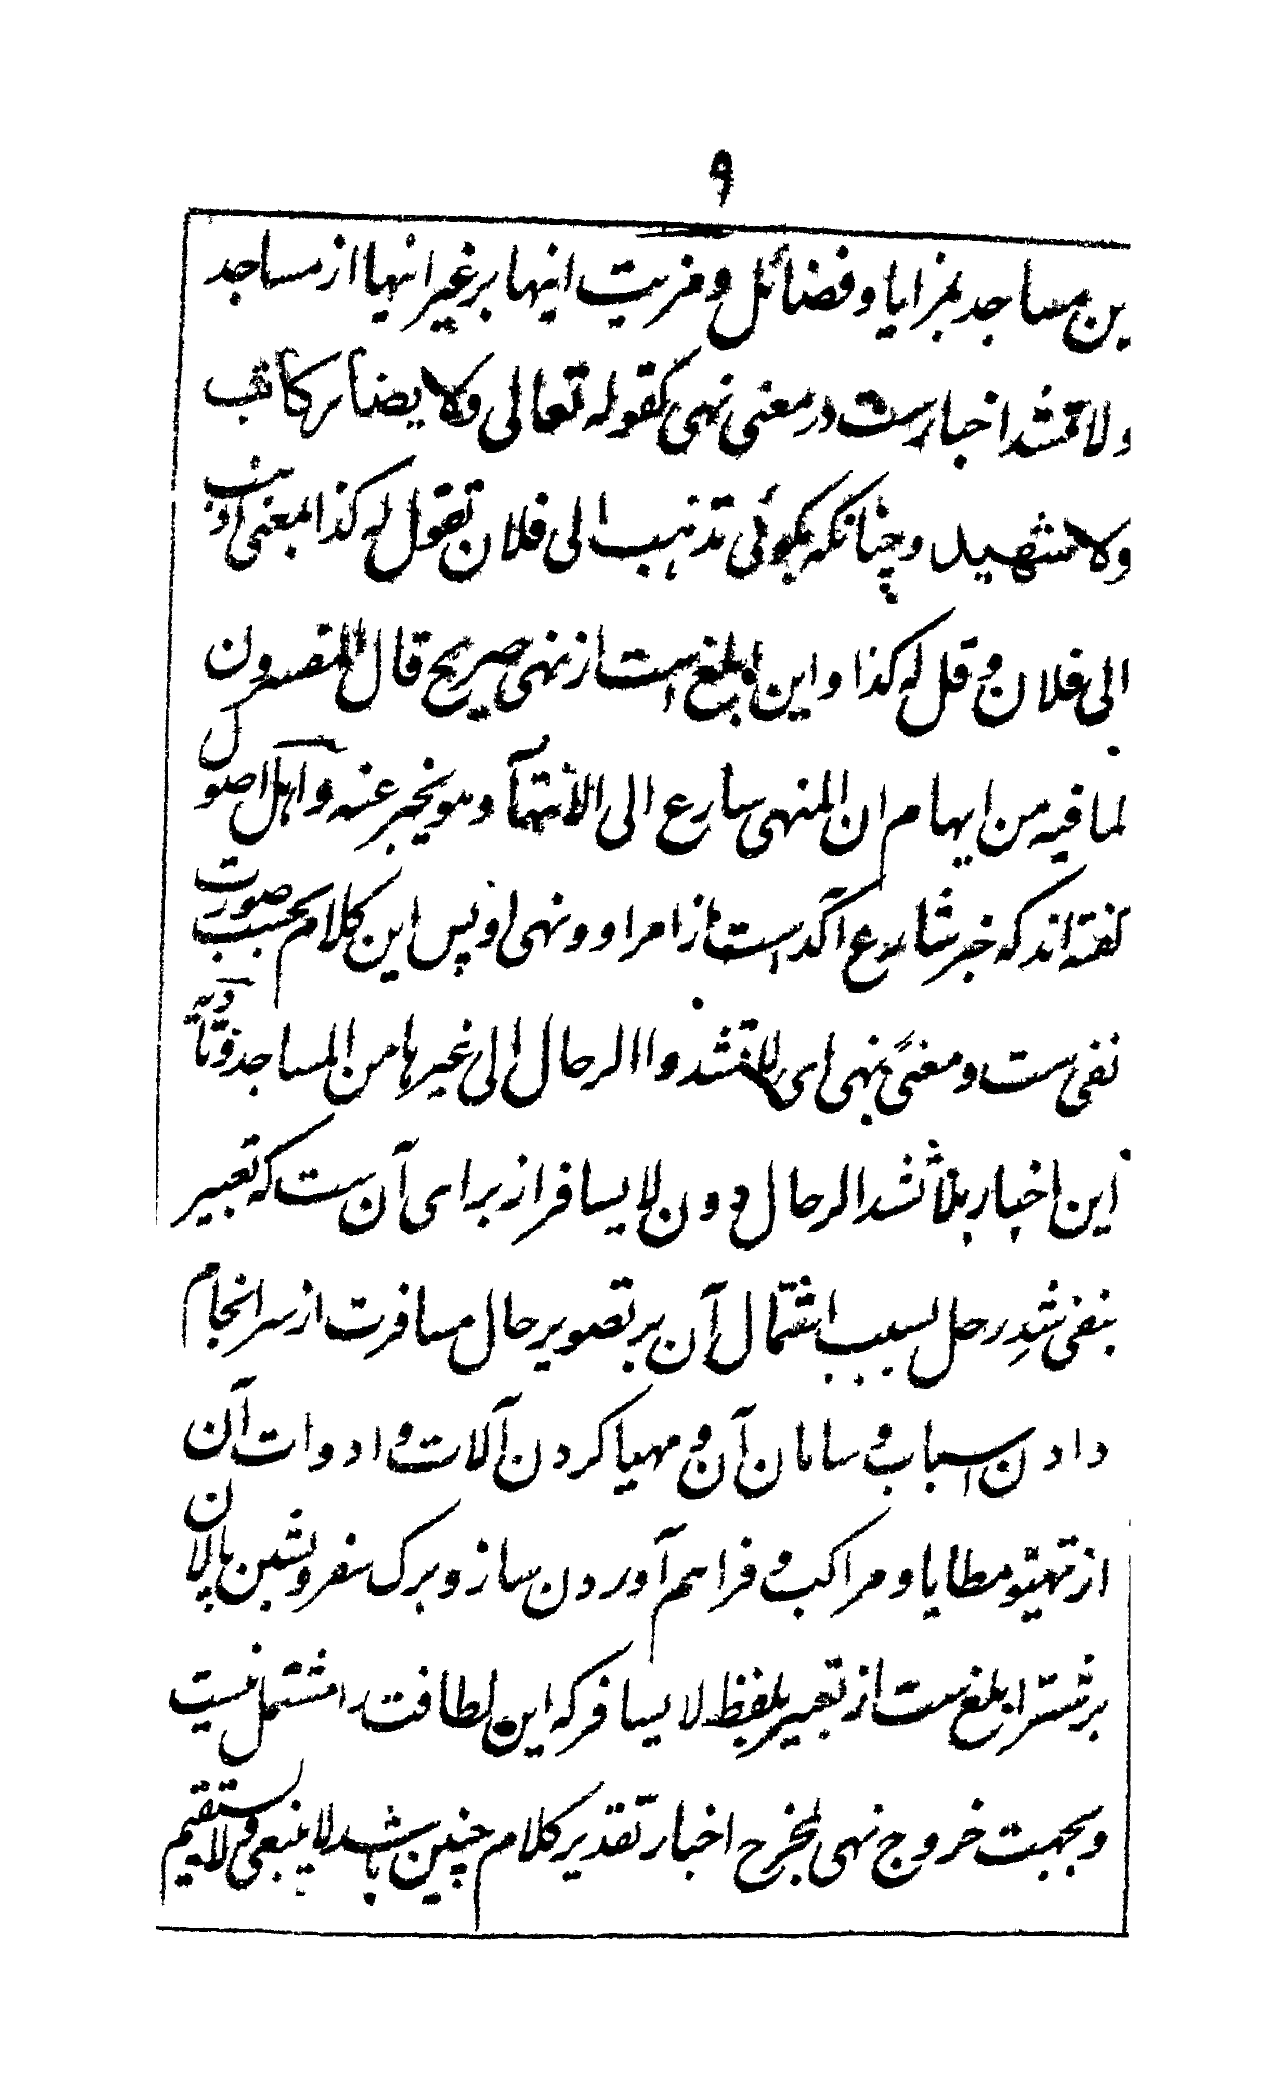 ۹
ین مساجد بمزایا و فضائل و مزیت اینها بر غیر اینها از مساجد
و لا تشد اخبارست در معنی نهی کقوله تعالی ولا یضار کاتب
ولا شهید و چنانکه بگوئی تذهب الی فلان تقول له کذا بمعنی اذهب
الی فلان و قل له کذا و این ابلغ است از نهی صریح قال المفسرون
لما فیه من ایهام ان المنهی سارع الی الانتهآء و هو یخبر عنه و اهل اصول
گفته اند که خبر شارع آکد است از امر او و نهی او پس این کلام بحسب صورت
نفی ست و معنًی نهی ای لا تشدوا الرحال الی غیرها من المساجد و تادیه
این اخبار بلا تشد الرحال دون لا یسافر از برای آن ست که تعبیر
بنفی شدِ رحل بسبب اشتمال آن بر تصویر حال مسافرت از سر انجام
دادن اسباب و سامان آن و مهیا کردن آلات و ادوات آن
از تهیئو مطایا و مراکب و فراهم آوردن ساز و برگ سفر و بستن پالان
بر شتر ابلغ ست از تعبیر بلفظ لا یسافر که این لطافت را مشتمل نیست
و بجهت خروج نهی لمخرج اخبار تقدیر کلام چنین باشد لا ینبغی و لا یستقیم